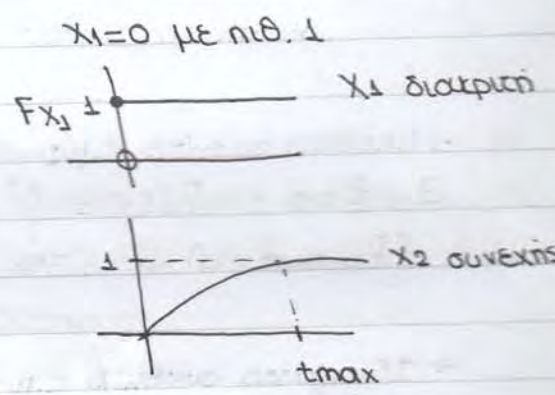 X1=0 με πιθ. 1
FX1 1
X1 διακριτή
1
X2 συνεχής
tmax